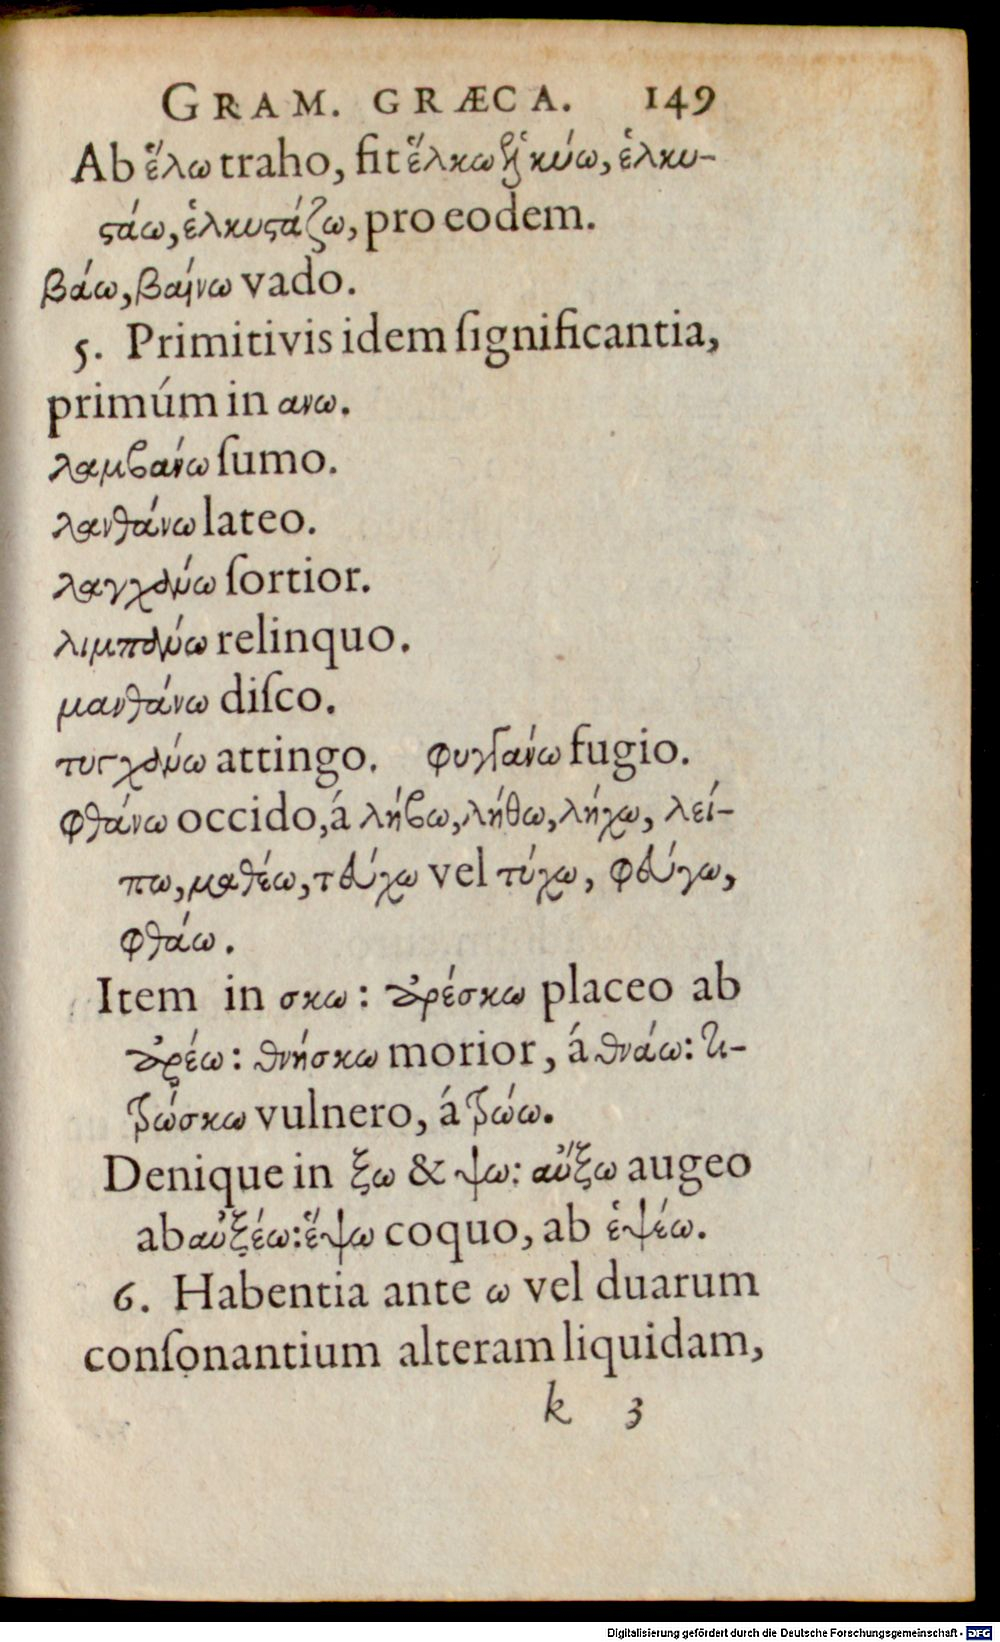 GRAM. GRÆCA. 149
Ab ἕλω traho, fit ἕλκω ἑλκύω, ἑλκυ-
ϛάω, ἑλκυϛάζω, pro eodem.
βάω, βαίνω vado.
5. Primitivis idem ſignificantia,
primúm in ανω.
λαμβανω ſumo.
λανθάνω lateo.
λαγχάνω ſortior.
λιμπάνω relinquo.
μανθάνω diſco.
τυγχάνω attingo. φυγγάνω fugio.
φθάνω occido, á λήβω, λήθω, λήχω, λεί-
πω, μαθέω, τεύχω vel τύχω, φεύγω,
φθάω.
Item in σκω: ἀρέσκω placeo ab
ἀρέω: θνήσκω morior, á θνάω: τι-
τρώσκω vulnero, á τρώω.
Denique in ξω & ψω: αὔξω augeo
ab αὐξέω: ἕψω coquo, ab ἑψέω.
6. Habentia ante ω vel duarum
conſonantium alteram liquidam,
k 3
Digitalisierung gefördert durch die Deutsche Forschungsgemeinschaft - DFG